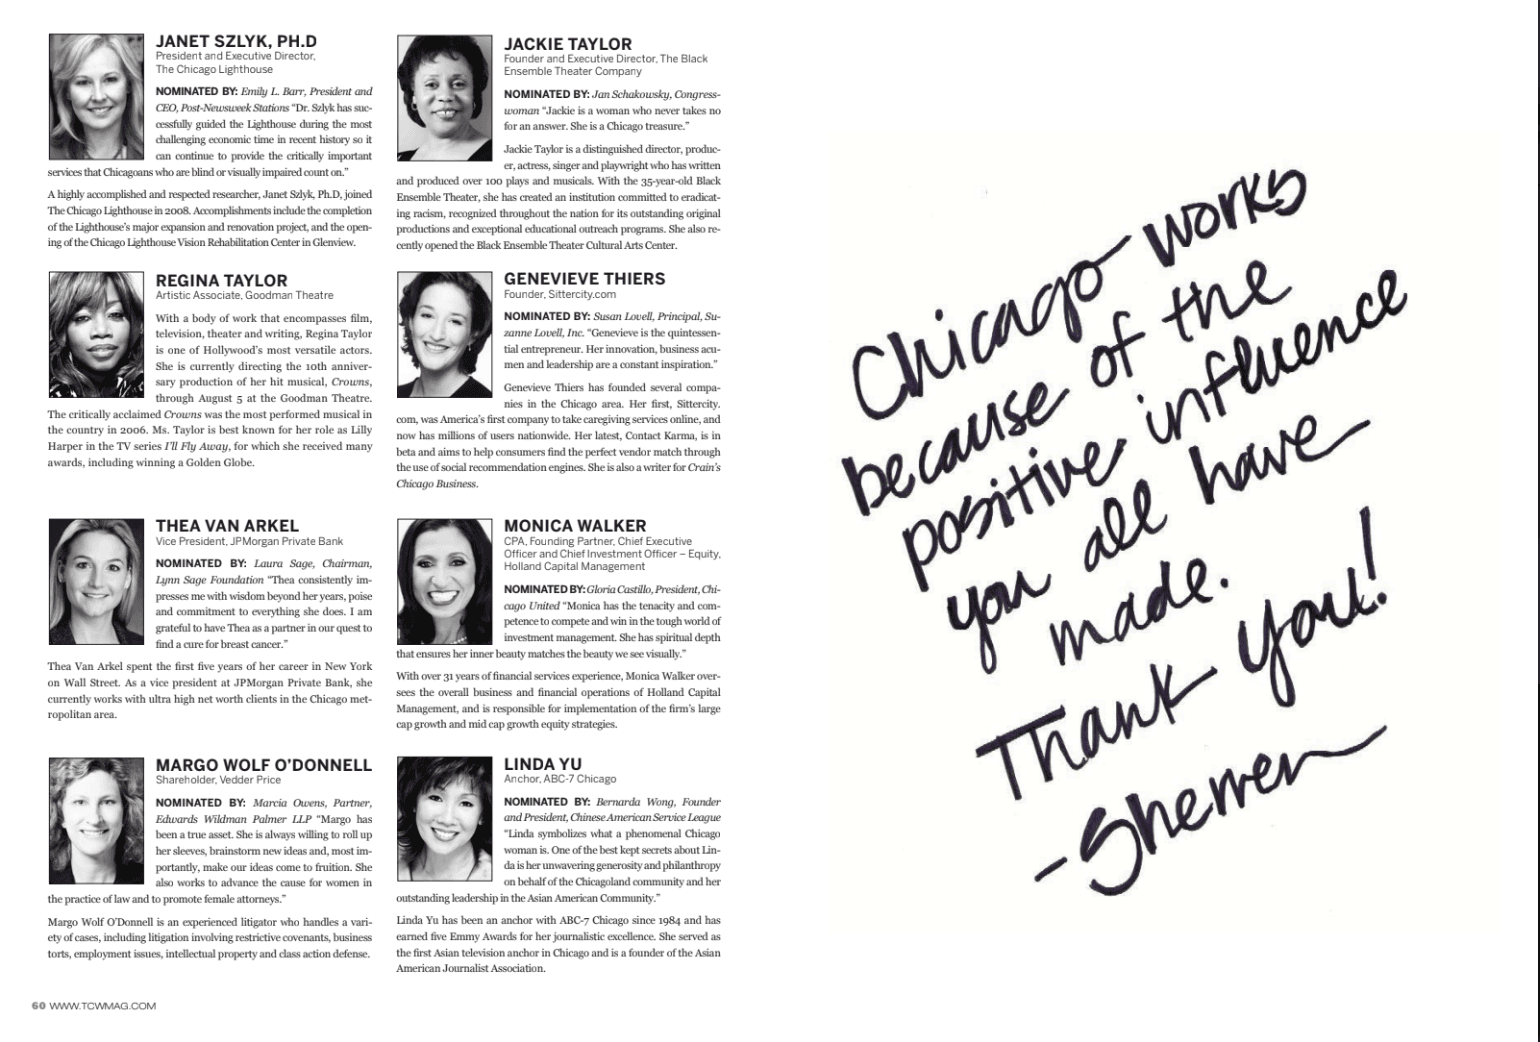 JANET SZLYK, PH.D
President and Executive Director,
The Chicago Lighthouse
NOMINATED BY: Emily L. Barr, President and
CEO, Post-Newsweek Stations “Dr. Szlyk has suc-
cessfully guided the Lighthouse during the most
challenging economic time in recent history so it
can continue to provide the critically important
services that Chicagoans who are blind or visually impaired count on.”
A highly accomplished and respected researcher, Janet Szlyk, Ph.D, joined
The Chicago Lighthouse in 2008. Accomplishments include the completion
of the Lighthouse’s major expansion and renovation project, and the open-
ing of the Chicago Lighthouse Vision Rehabilitation Center in Glenview.
REGINA TAYLOR
Artistic Associate, Goodman Theatre
With a body of work that encompasses film,
television, theater and writing, Regina Taylor
is one of Hollywood’s most versatile actors.
She is currently directing the 10th anniver-
sary production of her hit musical, Crowns,
through August 5 at the Goodman Theatre.
The critically acclaimed Crowns was the most performed musical in
the country in 2006. Ms. Taylor is best known for her role as Lilly
Harper in the TV series I’ll Fly Away, for which she received many
awards, including winning a Golden Globe.
THEA VAN ARKEL
Vice President, JPMorgan Private Bank
NOMINATED BY: Laura Sage, Chairman,
Lynn Sage Foundation “Thea consistently im-
presses me with wisdom beyond her years, poise
and commitment to everything she does. I am
grateful to have Thea as a partner in our quest to
find a cure for breast cancer.”
Thea Van Arkel spent the first five years of her career in New York
on Wall Street. As a vice president at JPMorgan Private Bank, she
currently works with ultra high net worth clients in the Chicago met-
ropolitan area.
MARGO WOLF O’DONNELL
Shareholder, Vedder Price
NOMINATED BY: Marcia Owens, Partner,
Edwards Wildman Palmer LLP “Margo has
been a true asset. She is always willing to roll up
her sleeves, brainstorm new ideas and, most im-
portantly, make our ideas come to fruition. She
also works to advance the cause for women in
the practice of law and to promote female attorneys.”
Margo Wolf O’Donnell is an experienced litigator who handles a vari-
ety of cases, including litigation involving restrictive covenants, business
torts, employment issues, intellectual property and class action defense.
JACKIE TAYLOR
Founder and Executive Director, The Black
Ensemble Theater Company
NOMINATED BY: Jan Schakowsky, Congress-
woman “Jackie is a woman who never takes no
for an answer. She is a Chicago treasure.”
Jackie Taylor is a distinguished director, produc-
er, actress, singer and playwright who has written
and produced over 100 plays and musicals. With the 35-year-old Black
Ensemble Theater, she has created an institution committed to eradicat-
ing racism, recognized throughout the nation for its outstanding original
productions and exceptional educational outreach programs. She also re-
cently opened the Black Ensemble Theater Cultural Arts Center.
GENEVIEVE THIERS
Founder, Sittercity.com
NOMINATED BY: Susan Lovell, Principal, Su-
zanne Lovell, Inc. “Genevieve is the quintessen-
tial entrepreneur. Her innovation, business acu-
men and leadership are a constant inspiration.”
Genevieve Thiers has founded several compa-
nies in the Chicago area. Her first, Sittercity.
com, was America’s first company to take caregiving services online, and
now has millions of users nationwide. Her latest, Contact Karma, is in
beta and aims to help consumers find the perfect vendor match through
the use of social recommendation engines. She is also a writer for Crain’s
Chicago Business.
MONICA WALKER
CPA, Founding Partner, Chief Executive
Officer and Chief Investment Officer – Equity,
Holland Capital Management
NOMINATED BY: Gloria Castillo, President, Chi-
cago United “Monica has the tenacity and com-
petence to compete and win in the tough world of
investment management. She has spiritual depth
that ensures her inner beauty matches the beauty we see visually.”
With over 31 years of financial services experience, Monica Walker over-
sees the overall business and financial operations of Holland Capital
Management, and is responsible for implementation of the firm’s large
cap growth and mid cap growth equity strategies.
LINDA YU
Anchor, ABC-7 Chicago
NOMINATED BY: Bernarda Wong, Founder
and President, Chinese American Service League
“Linda symbolizes what a phenomenal Chicago
woman is. One of the best kept secrets about Lin-
da is her unwavering generosity and philanthropy
on behalf of the Chicagoland community and her
outstanding leadership in the Asian American Community.”
Linda Yu has been an anchor with ABC-7 Chicago since 1984 and has
earned five Emmy Awards for her journalistic excellence. She served as
the first Asian television anchor in Chicago and is a founder of the Asian
American Journalist Association.
60 WWW.TCWMAG.COM
Chicago works
because of the
positive influence
you all have
made.
Thank you!
-Sherren